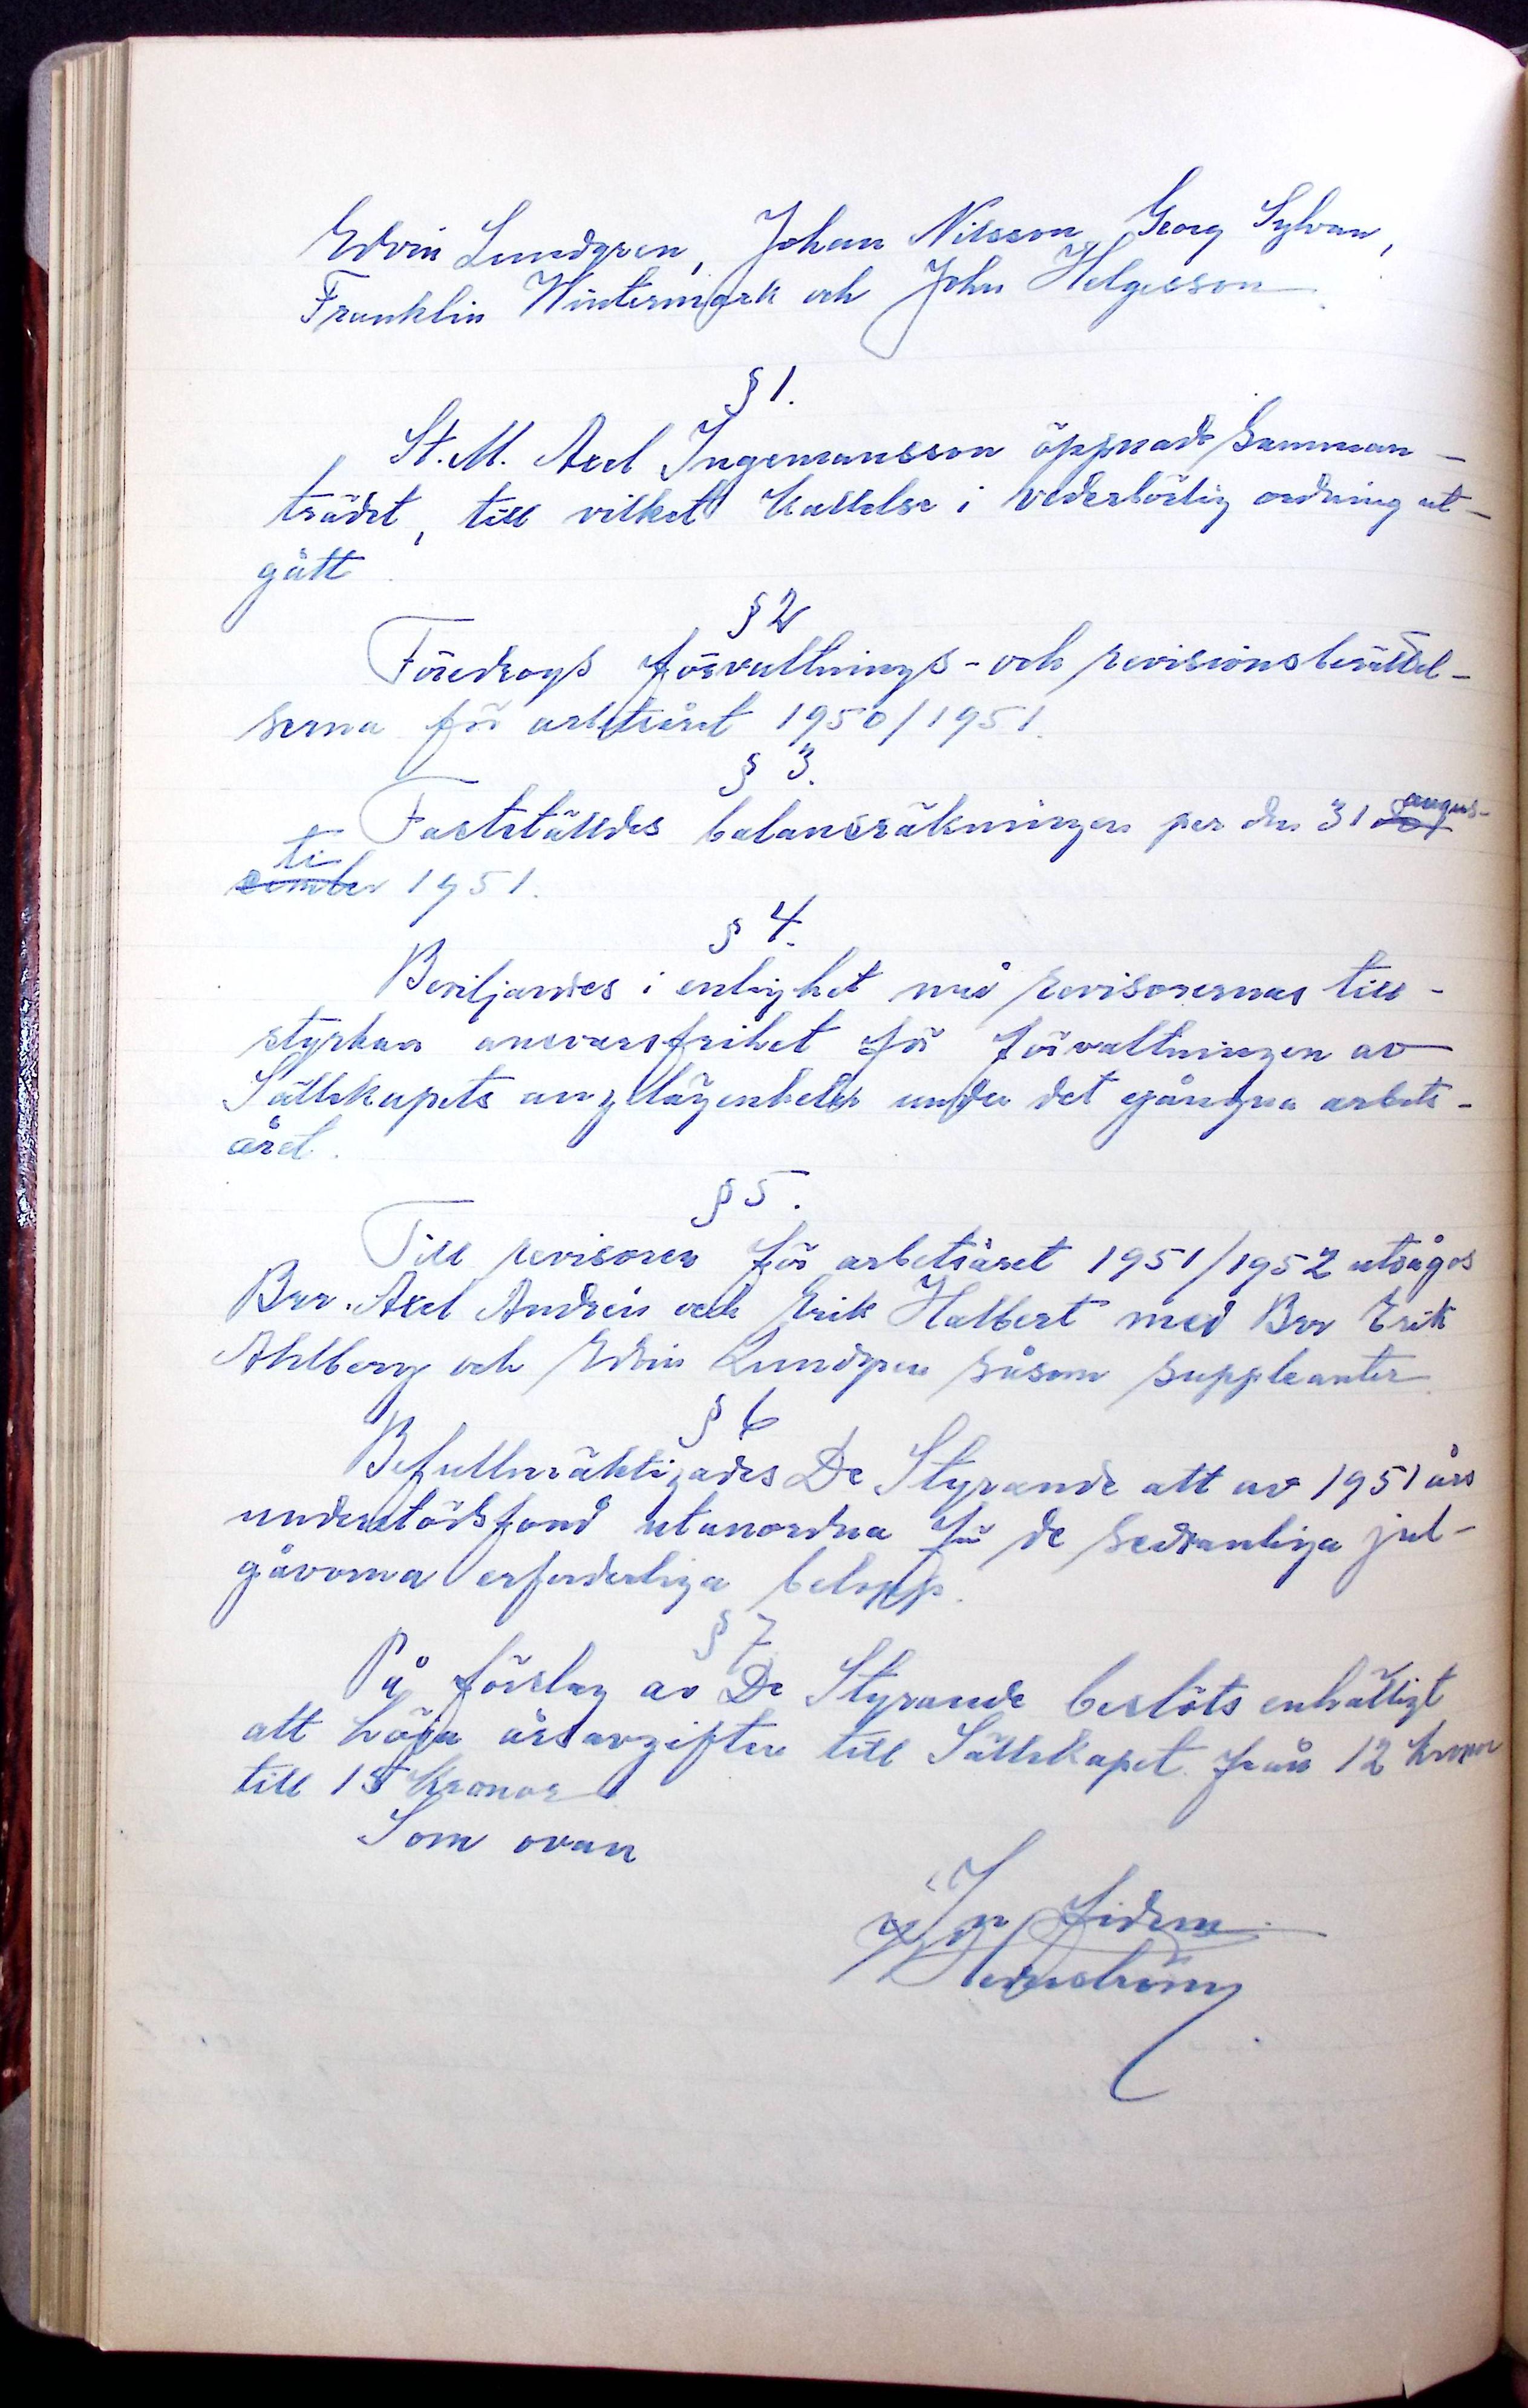 Edvin Lundgren, Johan Nilsson, Georg Sylvan,
Franklin Wintermark och John Helgesson
§ 1.
St. M. Axel Ingemansson öppnade samman-
trädet, till vilket kallelse i vederbörlig ordning ut-
gått.
§ 2
Föredrogs förvaltnings- och revisionsberättel-
serna för arbetsåret 1950/1951.
§ 3.
Fastställdes balansräkningen per den 31 de augus-
cember ti 1951.
§ 4.
Beviljandes i enlighet med revisorernas till-
styrkan ansvarsfrihet för förvaltningen av
Sällskapets angelägenheter under det gångna arbets-
året.
§ 5.
Till revisorer för arbetsåret 1951/1952 utsågos
Brr. Axel Andrén och Erik Halbert med Brr Erik
Ahlberg och Edvin Lundgren såsom suppleanter.
§ 6
Befullmäktigades De Styrande att av 1951 års
understödsfond utanordna för de sedvanliga jul-
gåvorna erforderliga belopp.
§ 7.
På förslag av De Styrande beslöts enhälligt
att höja årsavgiften till Sällskapet från 12 kronor
till 15 kronor.
Som ovan
In fidem